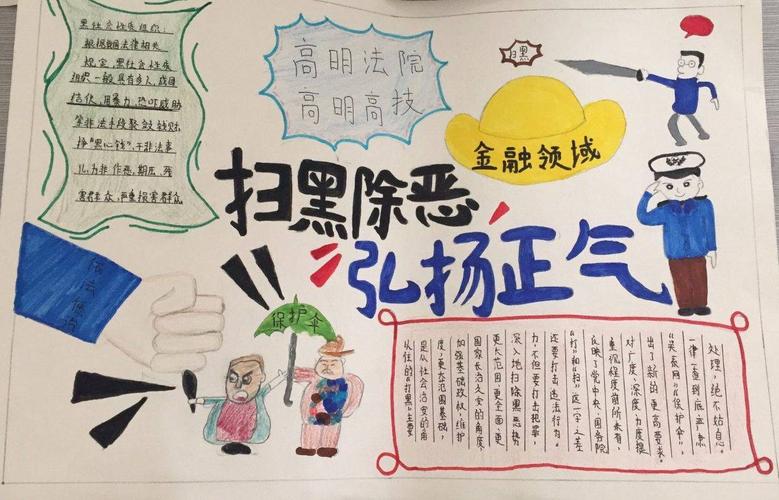 黑社会性质组织:
根据我国法律相关
规定,黑社会性质
组织一般具有多人,成团
结伙,用暴力,恐吓威胁
等非法手段聚敛钱财
挣"黑心钱",干非法事
儿,为非作恶,欺压,残
害群众,严重损害群众
高明法院
高明高技
扫黑
金融领域
扫黑除恶
弘扬正气
依法
保护伞
从往的"打黑"主要
是从社会治安的角
度,更大范围基础,
加强基础政权,维护
国家长治久安的角度,
更大范围、更全面、更
深入地扫除黑恶势
力,不但要打击犯罪,
还要打击违法行为。
"打"和"扫"这一字之差
反映了党中央、国务院
重视程度前所未有,
对广度、深度、力度提
出了新的更高要求。
"关系网""保护伞",
一律一查到底,严肃
处理,绝不姑息。